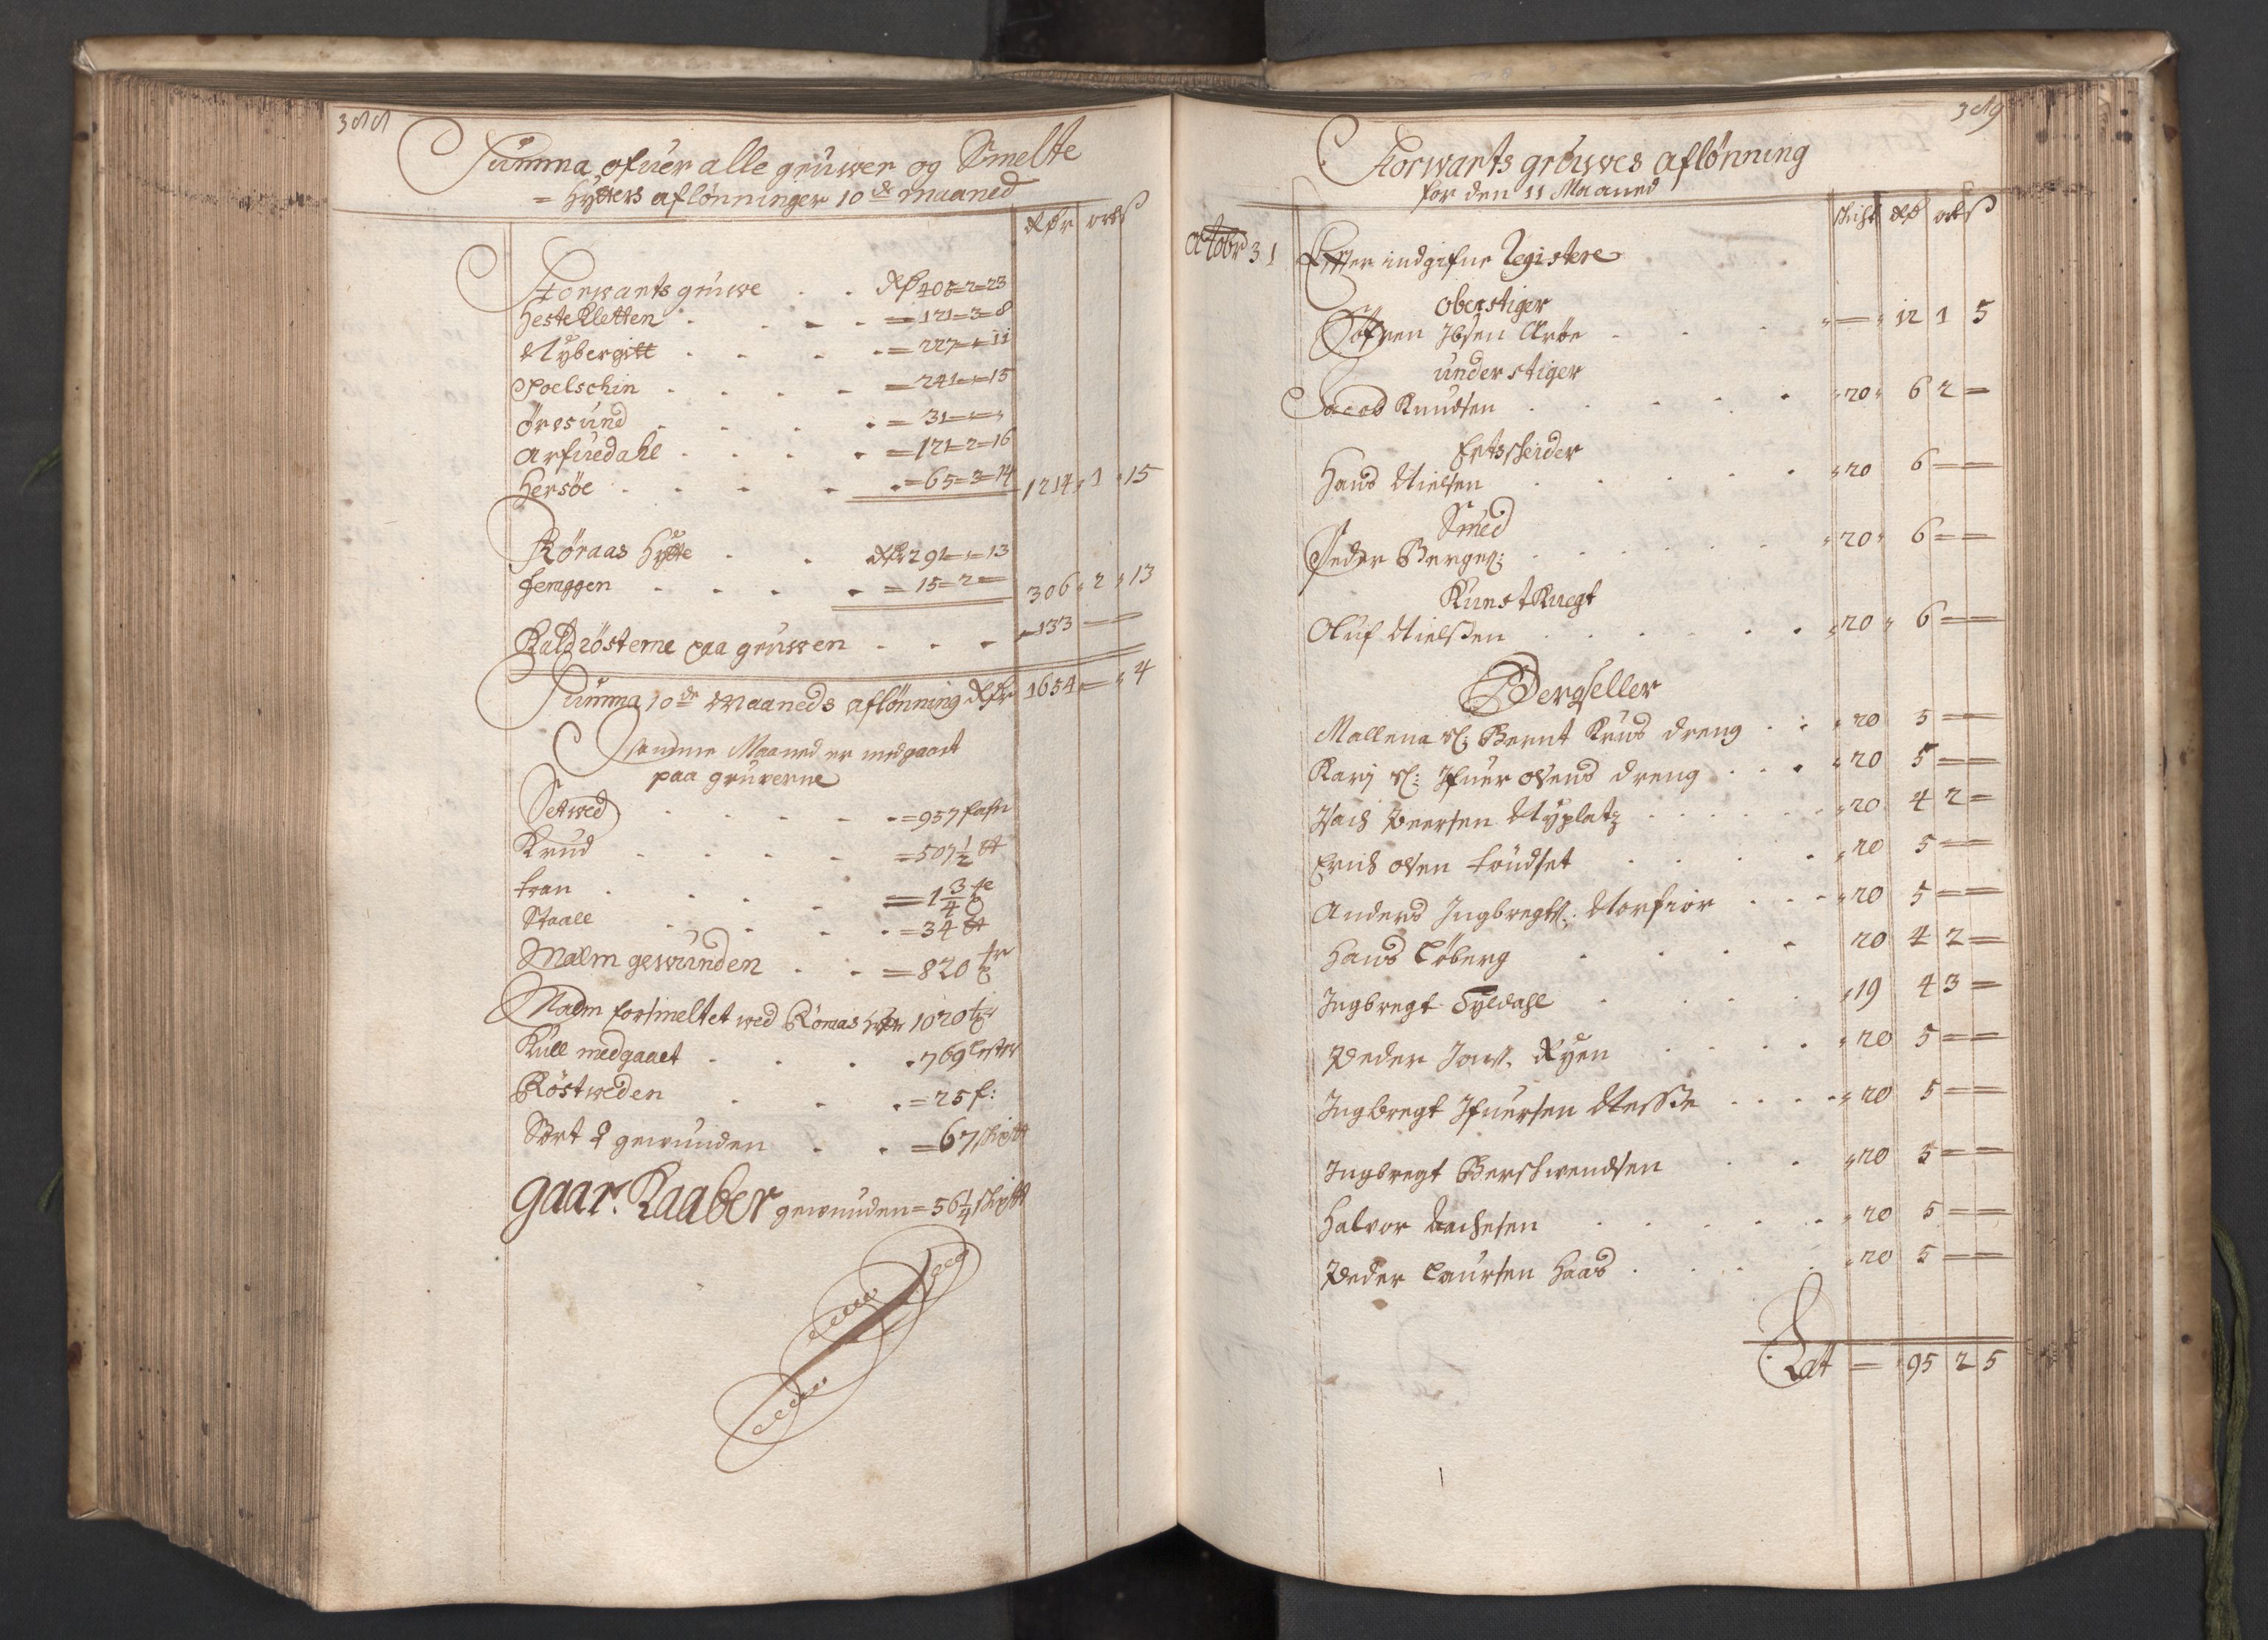 388
Summa ofuer alle gruwer og Smelte
= hytters aflønninger 10de maaned
Rdr ort ß
Storwarts gruwe . . Rd 405=2=23
Hestekletten . . . . = 121=3=8
Nybergitt . . . . = 227=,=11
Poelschin . . . . = 241=,=15
Öresund . . . . = 31=,=,
Arfuedahl . . . . = 121=2=16
Hersöe . . . . = 65=3=14 1214, 1, 15
Røraas Hytte . . Rdr 291=,=13
Femggen . . . . = 15=2= 306, 2, 13
Kaldrösterne paa gruwen . . . 133 = =
Summa 10de Maaneds aflønning Rdr 1654, =, 4
Samme Maaned er medgaaet
paa gruverne
Setwed . . . . = 957 fafn
Krud . . . . = 507 1/2 ℔
tran . . . . = 1 3/4 te
Staall . . . . = 34 ℔
Malm gewunden . . = 820 tr
Malm forsmeltet wed Röraas hytte 1020 tr
Kull medgaaet . . . 769 lester
Röstweden . . . = 25 f:
Sort ♀ gewunden . . = 67 skippt
gaar Kaaber gewunden = 56 1/4 skippt
389
Storwarts gruwes aflønning
for den 11 Maaned
skicht Rd ort ß
Octobr 31 Efter indgifne Registere
Oberstiger
Søfren Ibsen Ærøe . . . = 12 1 5
understiger
Jacob Knudsen . . . . 20 6 2 =
Ertsscheider
Hans Nielsen . . . . 20 6 = =
Smed
Peder Berges: . . . . 20 6 = =
Kunstknegt
Oluf Nielsen . . . . 20 6 = =
Bergseller
Mallena sl: Bernt Krus dreng . . 20 5 = =
Karj sl: Ifuer Olsens dreng . . . 20 5 = =
Isach Peersen Nyplatz . . . . 20 4 2 =
Erich Olsen töndset . . . . 20 5 = =
Anders Ingbregts: Norfior . . . 20 5 = =
Hans Löberg . . . 20 4 2 =
Ingbregt Tyldahl . . . . 19 4 3 =
Peder Jons. Ryen . . . . 20 5 = =
Ingbregt Ifuersen Nesse . . . . 20 5 = =
Ingbregt Berswendsen . . 20 5 = =
Halvor . . . . 20 5 = =
Peder Laursen Haas . . . . 20 5 = =
Lat = 95 2 5